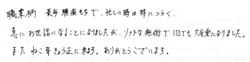 職業柄 長年腰痛もちで、忙しい時は特につらく
急にお世話になることになりましたが、ソフトな施術で1回でも大変楽になりました。
また お世話になると思います。ありがとうございます。